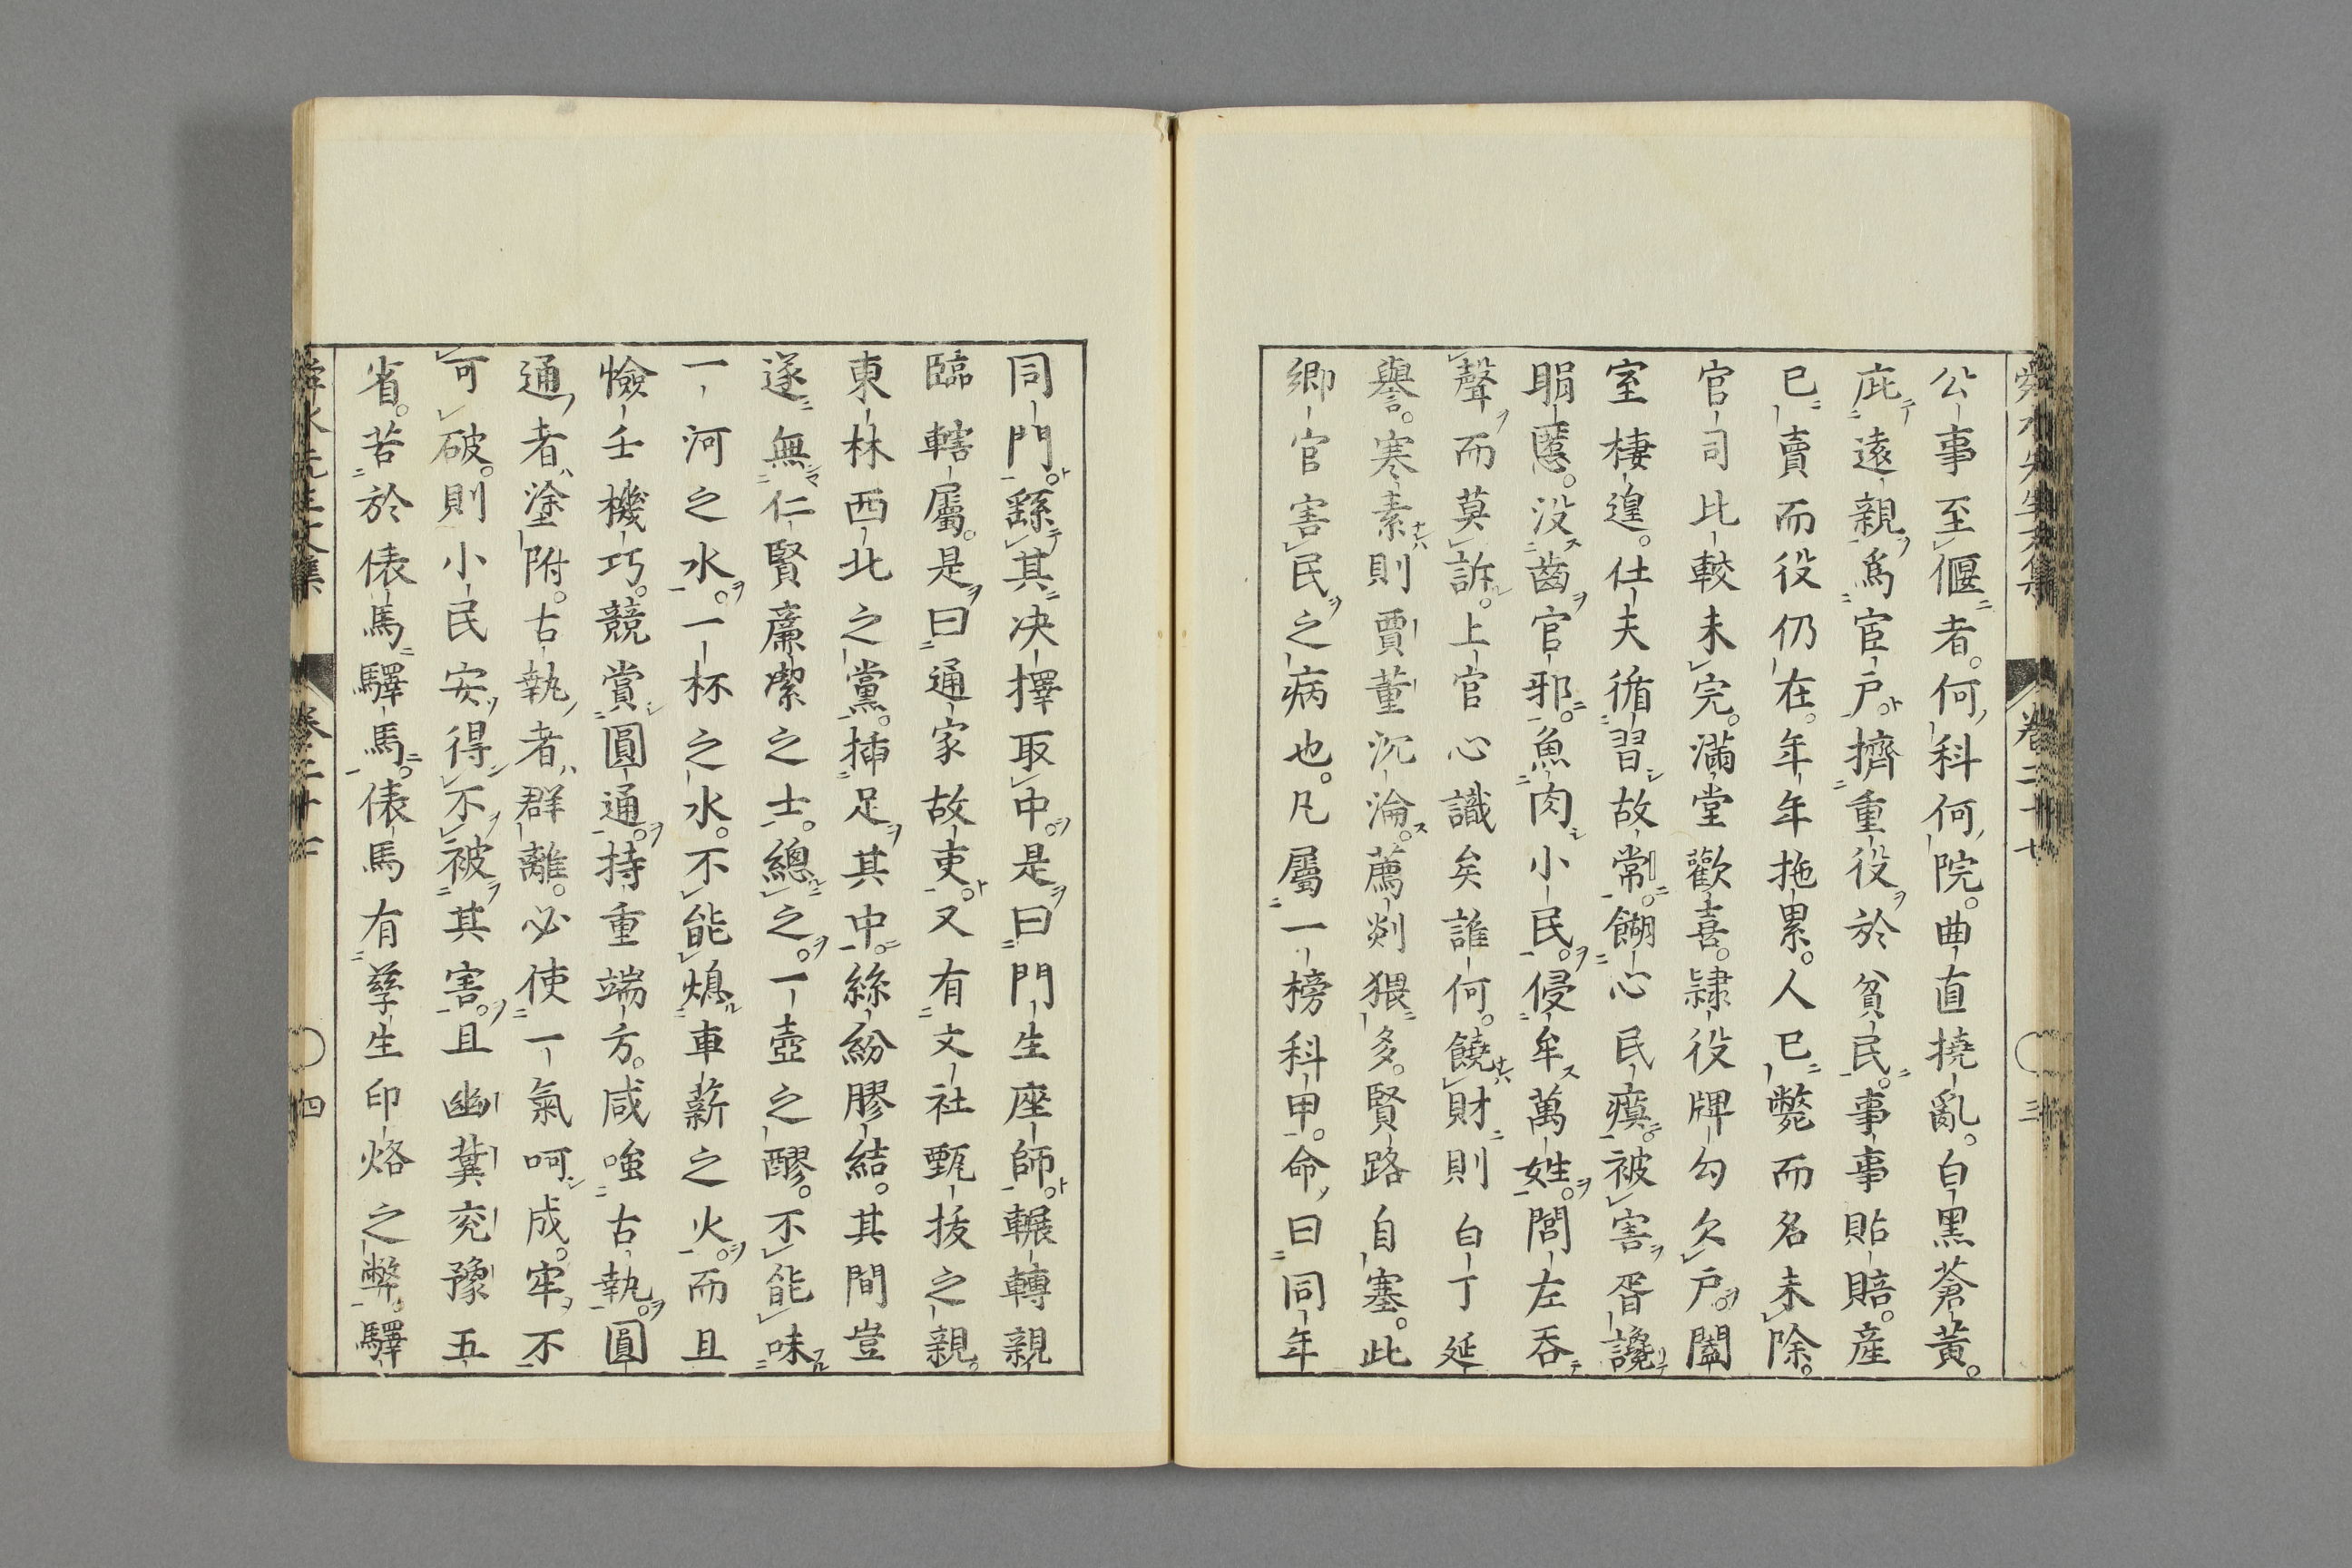 舜水先生文集 卷二十七 三
公事至偃者。何科何院。曲直撓亂。白黑蒼黃。
庇遠親爲宦戶。擠重役於貧民。事事貼賠。産
已賣而役仍在。年年拖累。人已斃而名未除。
官司比較未完。滿堂歡喜。隷役牌勾欠戶。闔
室棲遑。仕夫循習故常。餬心民瘼。被害胥讒
䀏慝。没齒官邪。魚肉小民。侵牟萬姓。閭左吞
聲而莫訴。上官心識矣誰何。饒財則白丁延
譽。寒素則賈董沉淪。薦剡猥多。賢路自塞。此
鄉官害民之病也。凡屬一榜科甲。命曰同年
同門。繇其决擇取中。是曰門生座師。輾轉親
臨轄屬。是曰通家故吏。又有文社甄拔之親。
東林西北之黨。挿足其中。絲紛膠結。其間豈
遂無仁賢廉潔之士。總之。一壺之醪。不能味
一河之水。一杯之水。不能熄車薪之火。而且
憸壬機巧。競賞圓通。持重端方。咸嗤古執。圓
通者塗附。古執者群離。必使一氣呵成。牢不
可破。則小民安得不被其害。且幽冀兖豫五
省。苦於俵馬驛馬。俵馬有孳生印烙之弊。驛
舜水先生文集 卷二十七 四